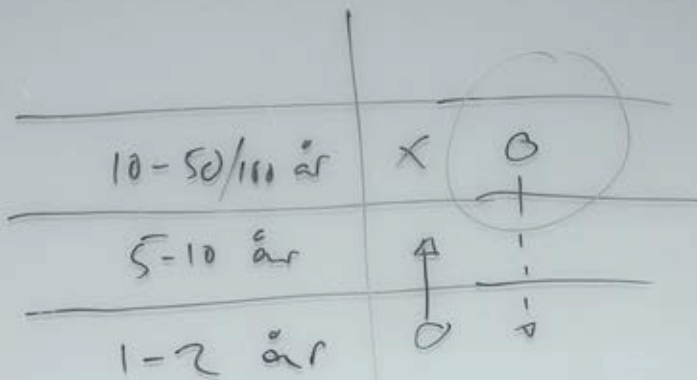 10-50/100 år X O
5-10 år
1-2 år O